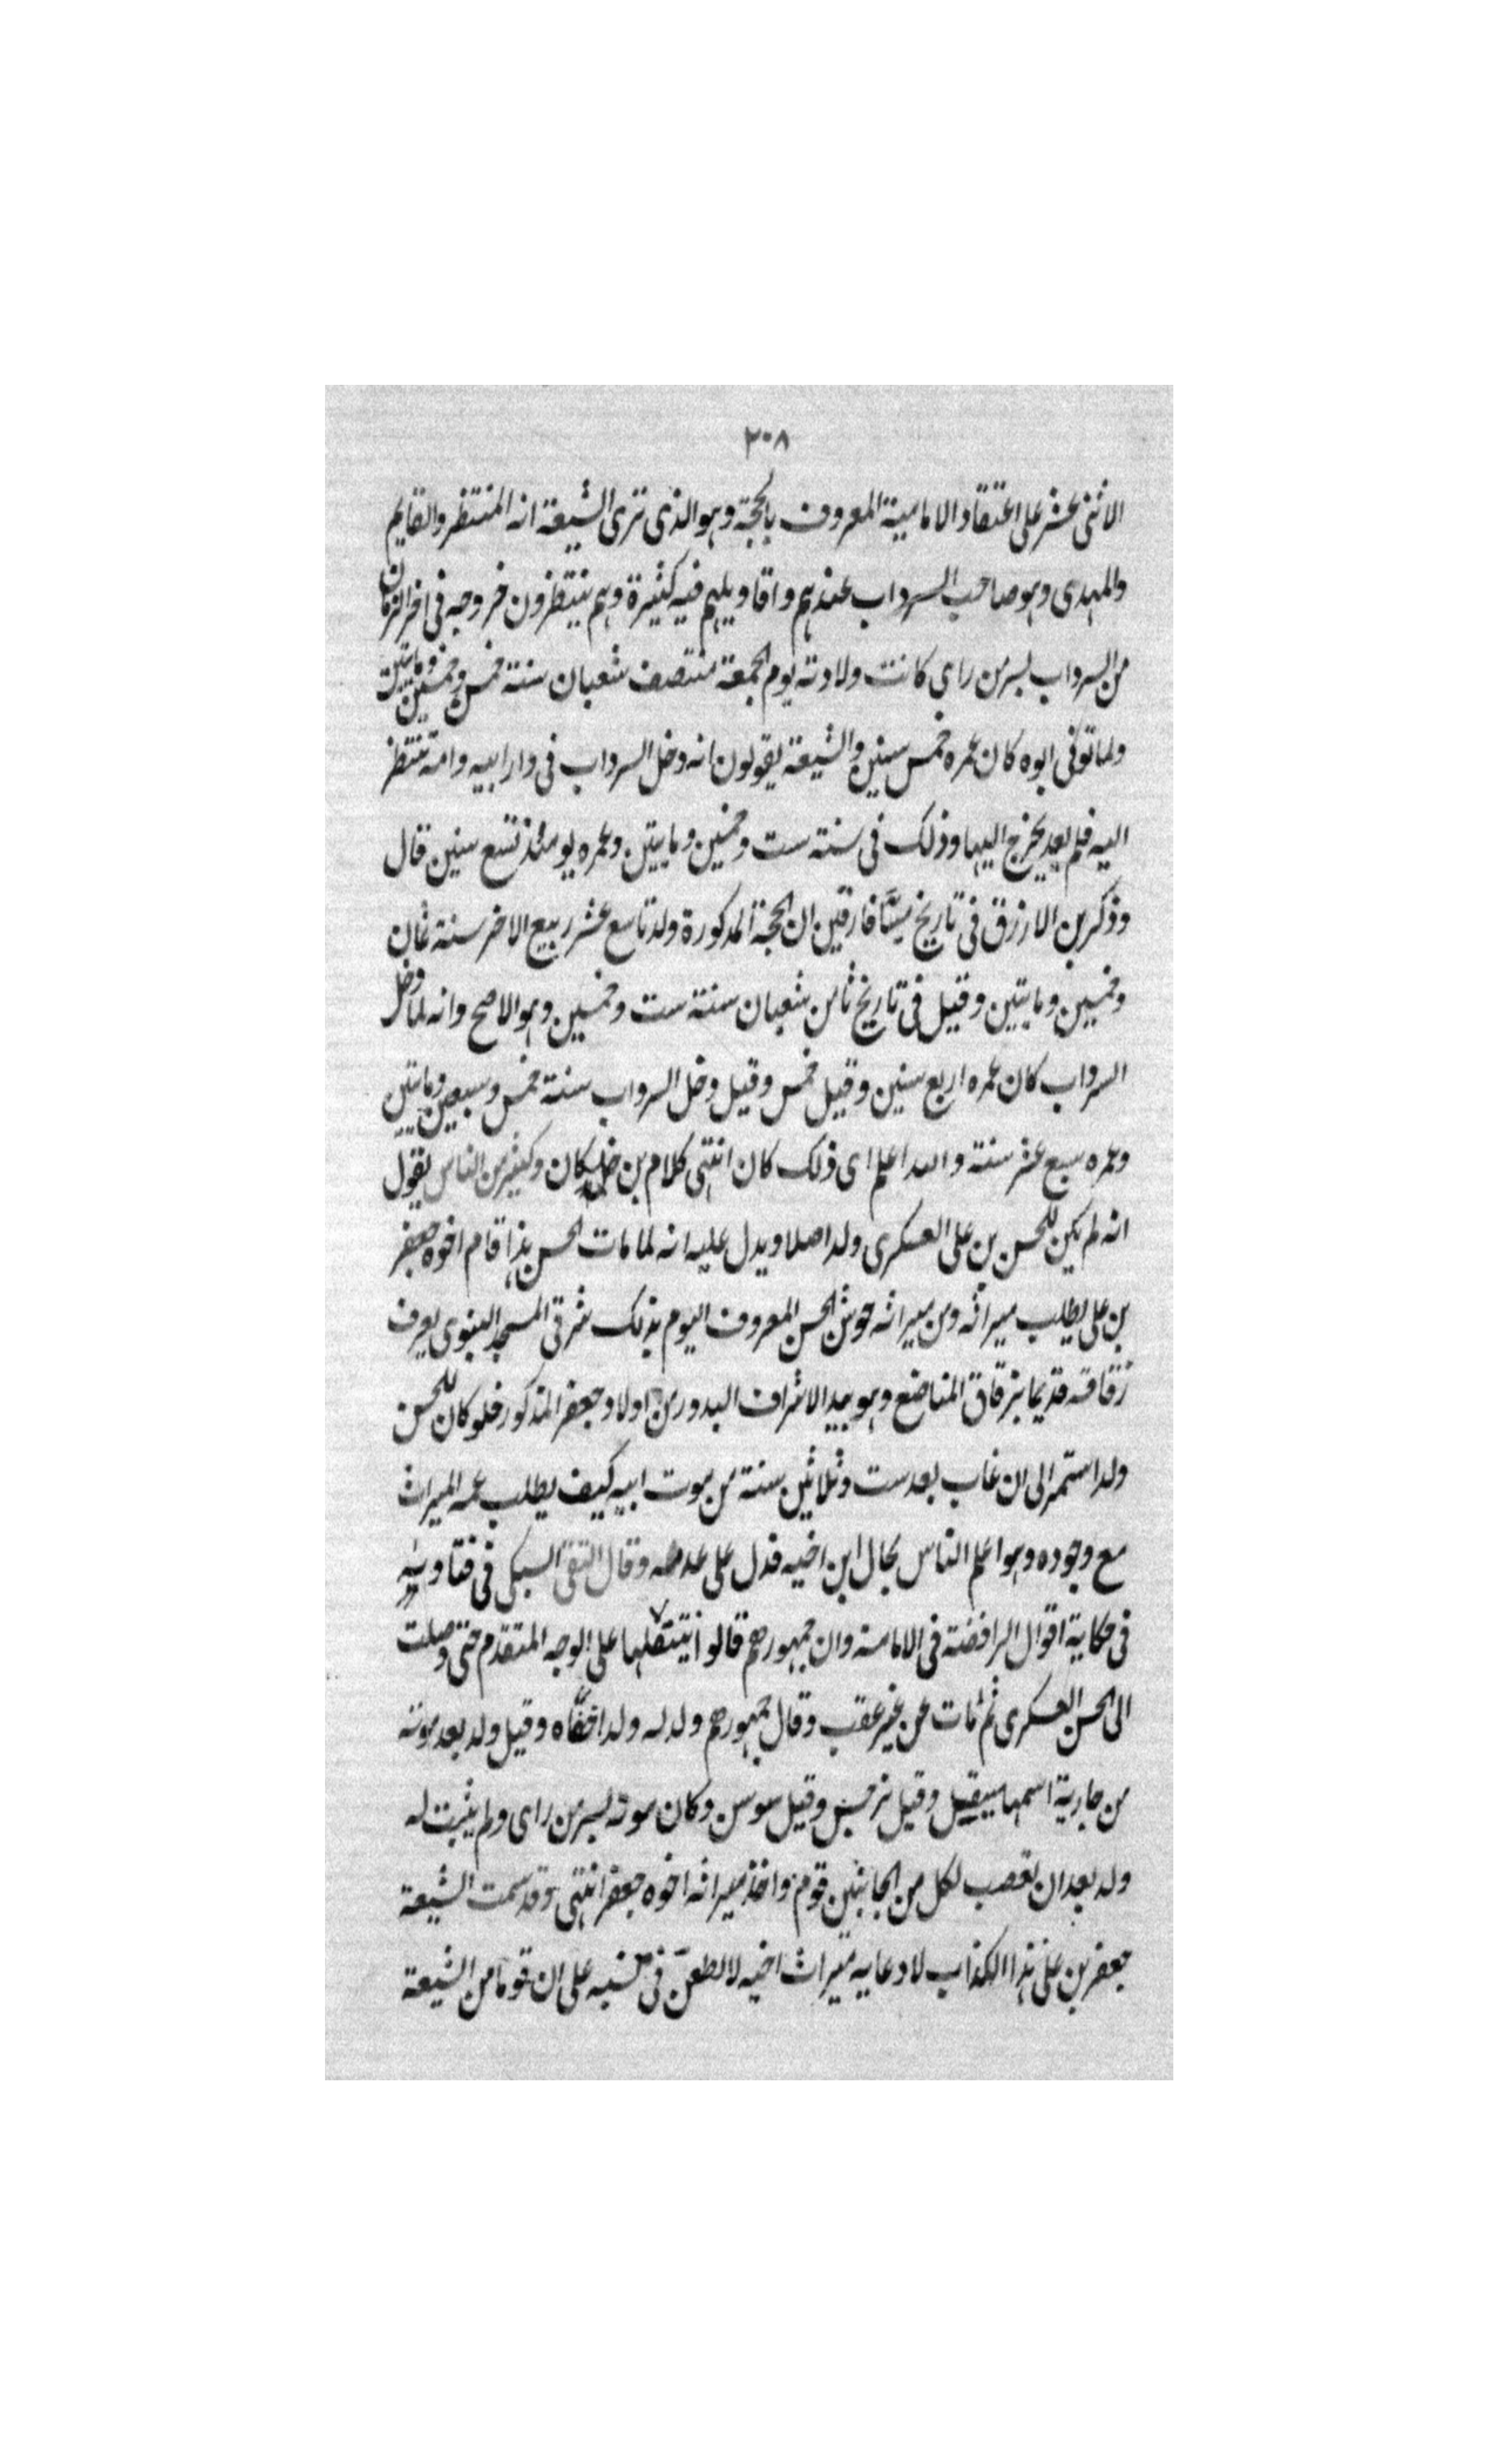 ٣٠٨
الاثنى عشر على اعتقاد الامامية المعروف بالحجة وهو الذى تزى الشيعة انه المنتظر والقايم
والمهدى وهو صاحب السرداب عندهم واقاويلهم فيه كثيرة وهم ينتظرون خروجه فى اخر الزمان
من السرداب بسر من راى كانت ولادته يوم الجمعة منتصف شعبان سنة خمس وخمسين ومايتين
ولما توفى ابوه كان عمره خمس سنين والشيعة يقولون انه دخل السرداب فى دار ابيه وامه تنتظر
اليه فلم يعد يخرج اليها وذلك فى سنة ست وخمسين ومايتين وعمره يومئذ تسع سنين قال
وذكر بن الازرق فى تاريخ ميّافارقين ان الحجة المذكورة ولد تاسع عشر ربيع الاخر سنة ثمان
وخمسين ومايتين وقيل فى تاريخ ثامن شعبان سنة ست وخمسين وهو الاصح وانه لما دخل
السرداب كان عمره اربع سنين وقيل خمس وقيل دخل السرداب سنة خمس وسبعين ومايتين
وعمره سبع عشر سنة والله اعلم اى ذلك كان انتهى كلام بن خلكان وكثير من الناس يقول
انه لم يكن للحسن بن على العسكرى ولد اصلا ويدل عليه انه لما مات الحسن هذا قام اخوه جعفر
بن على يطلب ميراثه ومن ميراثه حوش الحسن المعروف اليوم بذلك شرقى المسجد النبوى يعرف
زقاقه قديما بزقاق المناصع وهو بيد الاشراف البدور من اولاد جعفر المذكور فلو كان للحسن
ولد استمر الى ان غاب بعد ست وثلاثين سنة من موت ابيه كيف يطلب عمه الميراث
مع وجوده وهو اعلم الناس بحال ابن اخيه فدل على عدمه وقال التقى السبكى فى فتاويه
فى حكاية اقوال الرافضة فى الامامة وان جمهورهم قالوا بتنقلها على الوجه المتقدم حتى وصلت
الى الحسن العسكرى ثم مات عن غير عقب وقال جمهورهم ولد له ولد اخفاه وقيل ولد بعد موته
من جارية اسمها صيقل وقيل نرجس وقيل سوسن وكان موته بسر من راى ولم يثبت له
ولد بعد ان تعصب لكل من الجانبين قوم واخذ ميراثه اخوه جعفر انتهى وقد سمت الشيعة
جعفر بن على هذا الكذاب لادعايه ميراث اخيه لا لطعن فى نسبه على ان قوما من الشيعة